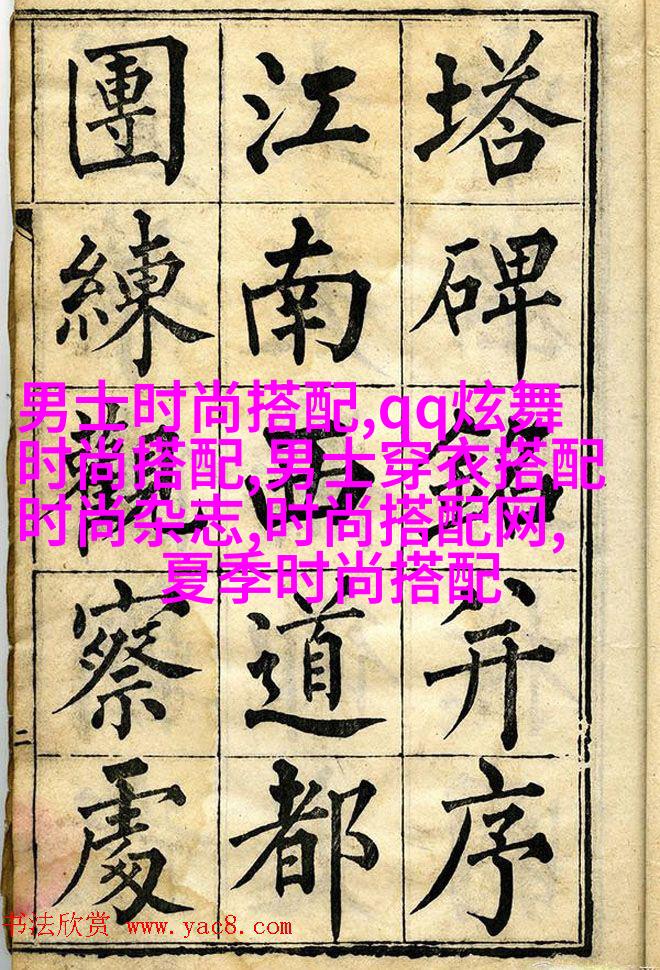 塔碑銘并序
江南西道都
團練觀察處
二
男士时尚搭配,qq炫舞
时尚搭配,男士穿衣搭配
时尚杂志,时尚搭配网,
夏季时尚搭配
书法欣赏 www.yac8.com